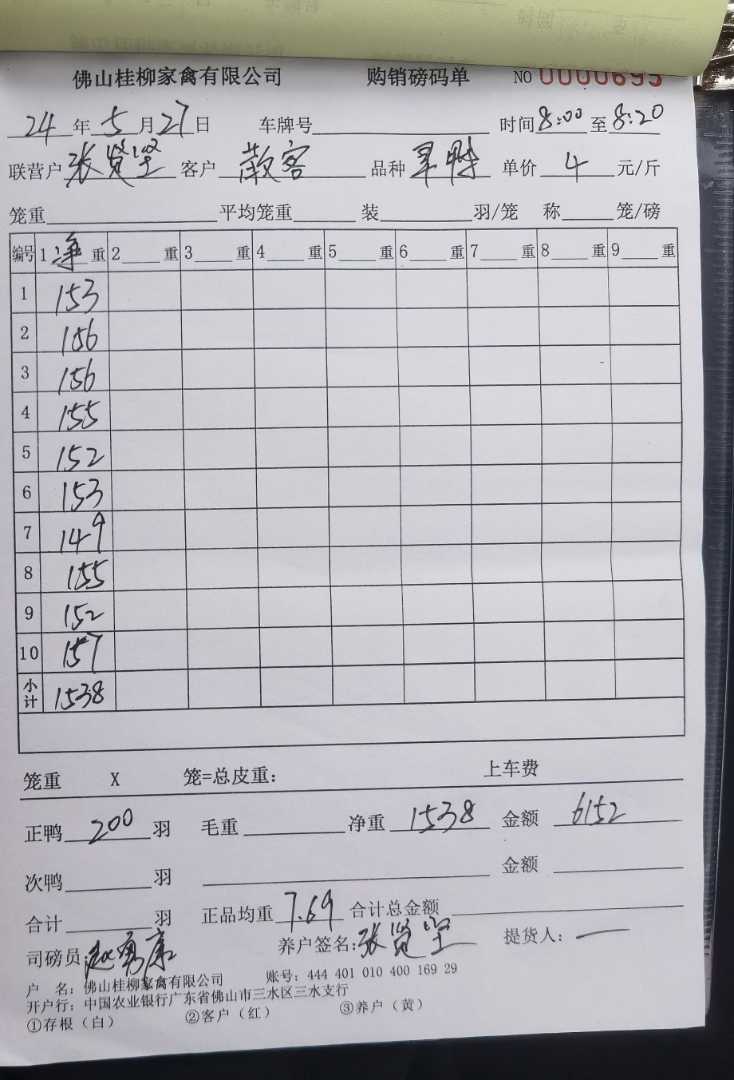 佛山桂柳家禽有限公司 购销磅码单 NO 0000695
24年5月27日 车牌号 时间8:00至8:20
联营户 张贤坚 客户 散客 品种 单价 4 元/斤
笼重 平均笼重 装 羽/笼 称 笼/磅
编号 1 净 重 2 重 3 重 4 重 5 重 6 重 7 重 8 重 9 重
1 153
2 156
3 156
4 155
5 152
6 153
7 149
8 155
9 152
10 157
小计 1538
笼重 X 笼=总皮重: 上车费
正鸭 200 羽 毛重 净重 1538 金额 6152
次鸭 羽 金额
合计 羽 正品均重 7.69 合计总金额
司磅员 赵勇康 养户签名:张贤坚 提货人:
户 名: 佛山桂柳家禽有限公司 账号: 444 401 010 400 169 29
开户行: 中国农业银行广东省佛山市三水区三水支行
①存根(白) ②客户(红) ③养户(黄)